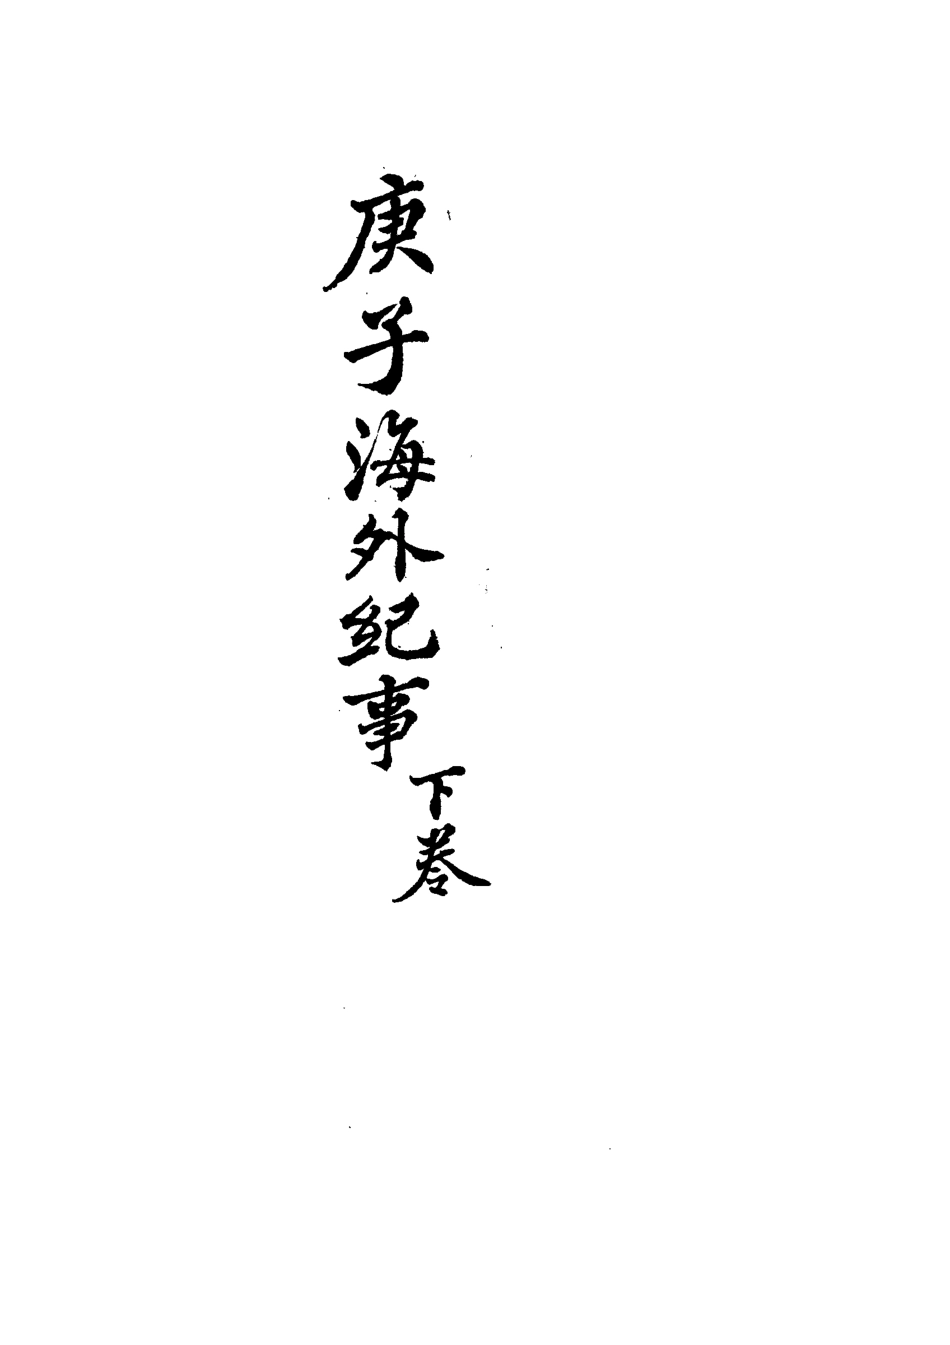 庚子海外紀事
下卷